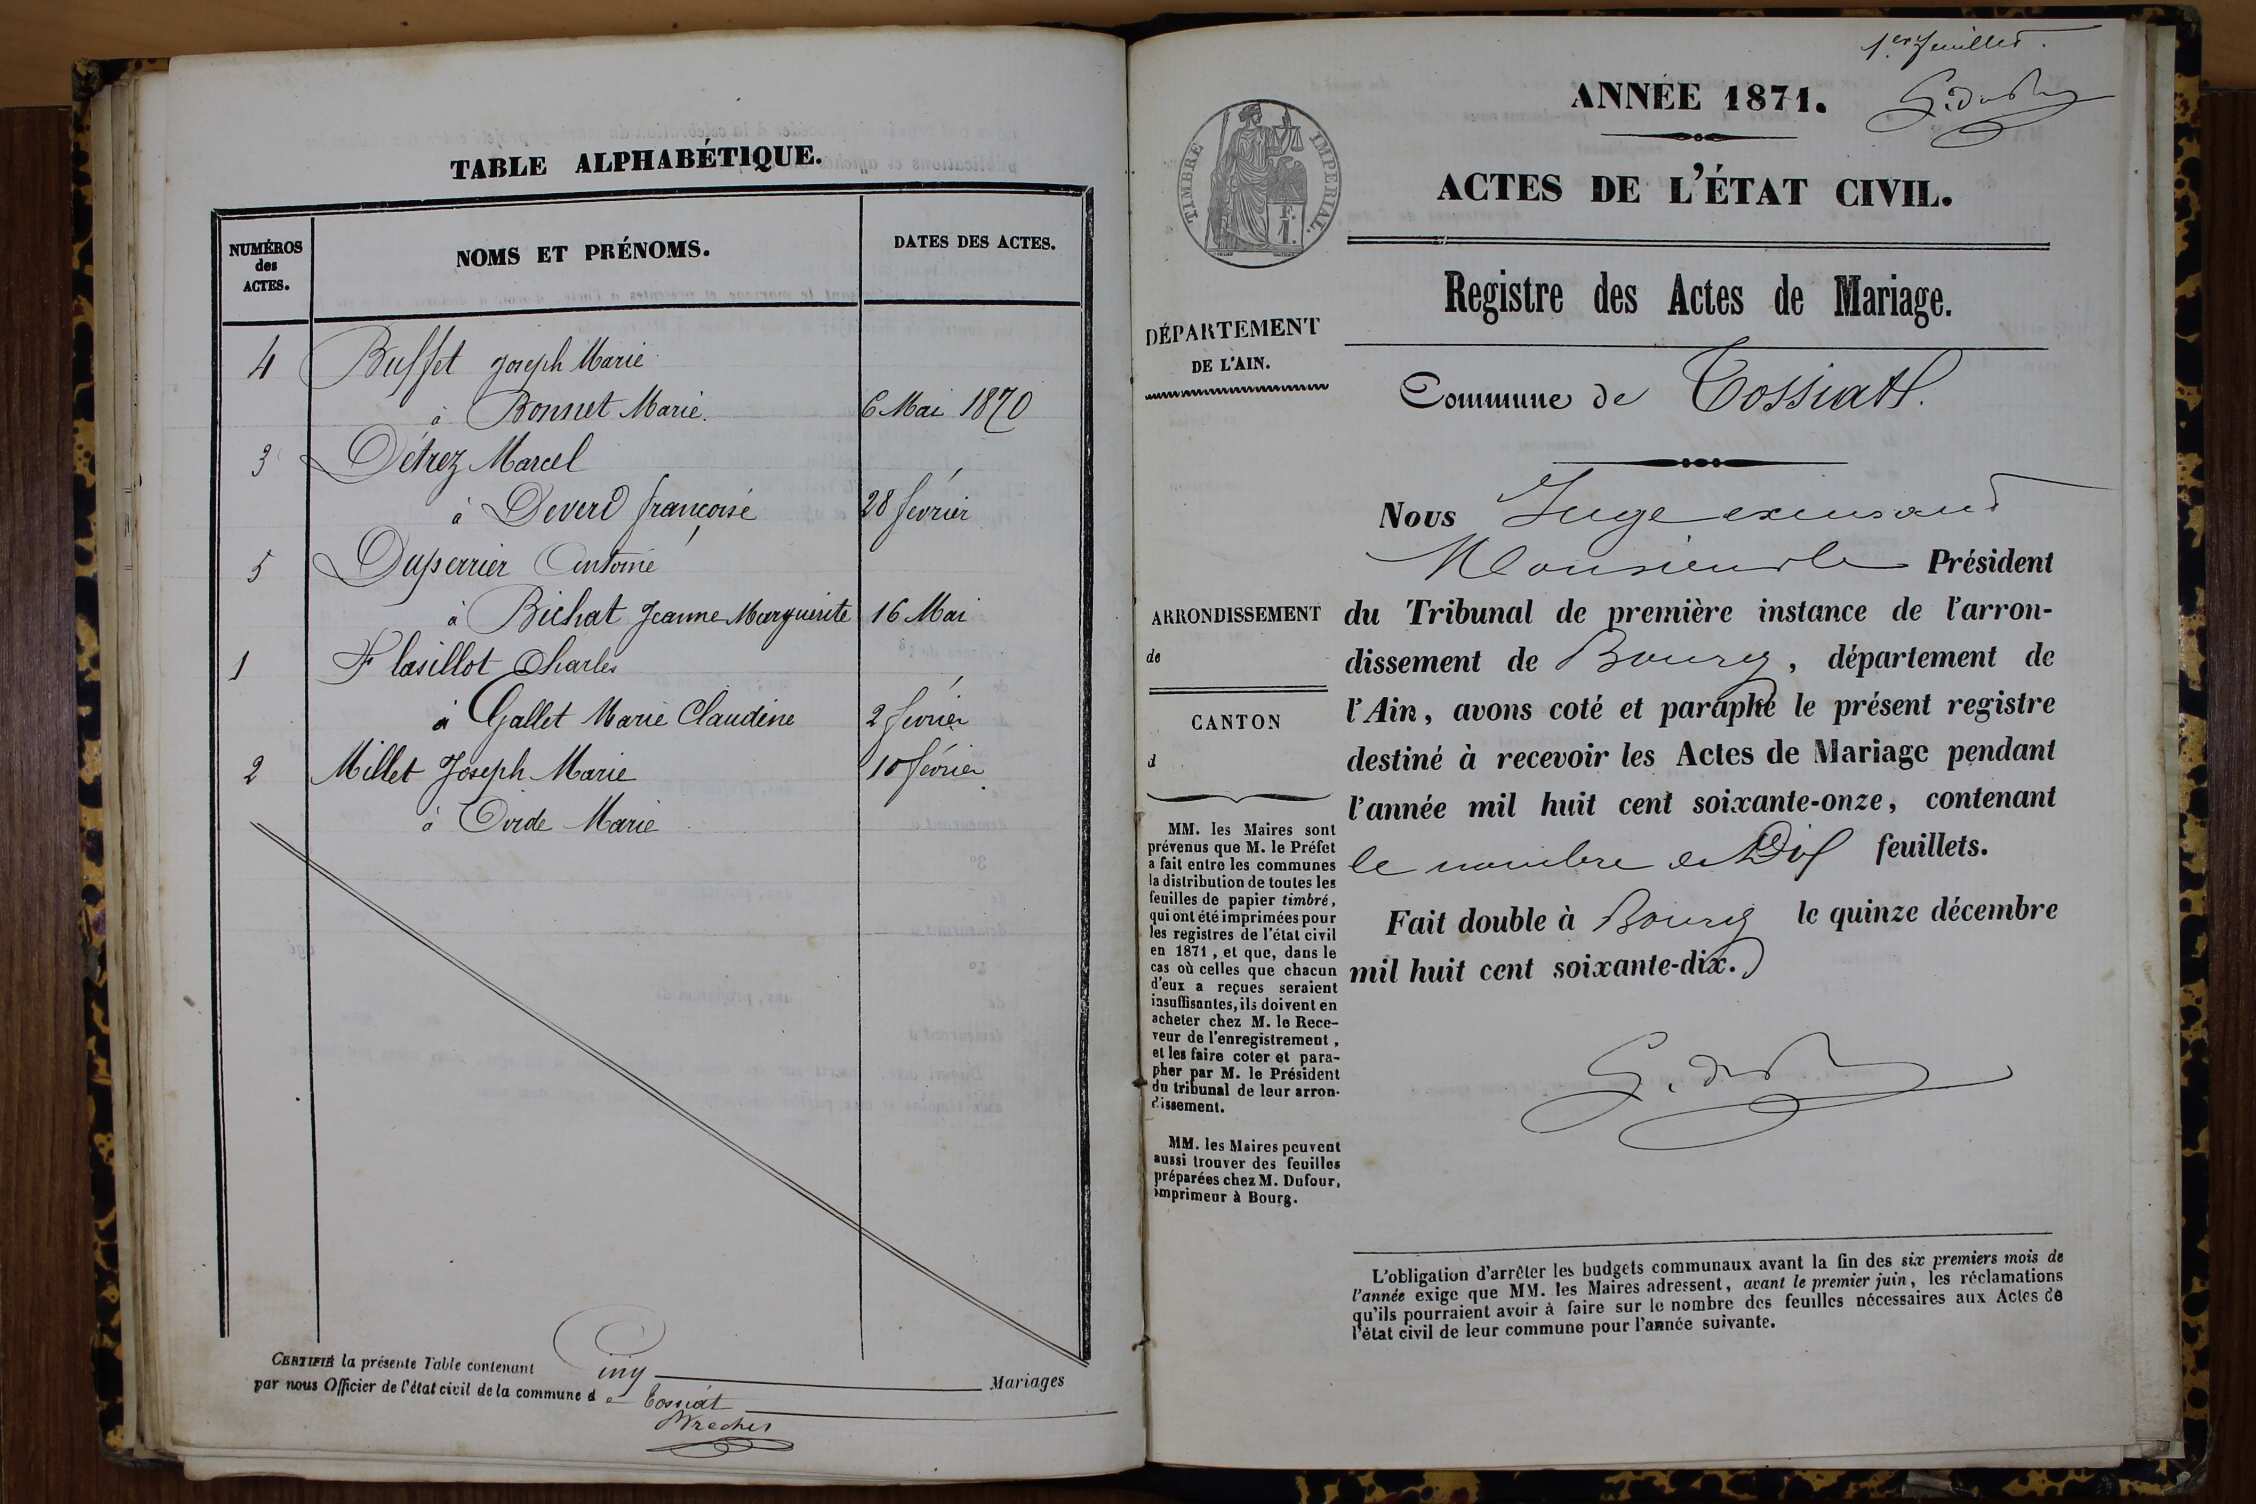 TABLE ALPHABÉTIQUE.
NUMÉROS
des
ACTES.
NOMS ET PRÉNOMS.
DATES DES ACTES.
4 Buffet Joseph Marie
à Bonnet Marie. 6 Mai 1870
3 Détrez Marcel
à Deverd françoise 28 février
5 Duperrier Antoine
à Bichat Jeanne Marguerite 16 Mai
1 Flasillot Charles
à Gallet Marie Claudine 2 février
2 Millet Joseph Marie 10 février
à Ovide Marie
CERTIFIÉ la présente Table contenant Cinq Mariages
par nous Officier de l'état civil de la commune de Tossiat
1er feuillet.
ANNÉE 1871.
ACTES DE L'ÉTAT CIVIL.
TIMBRE IMPERIAL.
F.
1.
Registre des Actes de Mariage.
DÉPARTEMENT
DE L'AIN.
Commune de Tossiat.
Nous Juge excusant
Monsieur le Président
ARRONDISSEMENT
de
CANTON
d
du Tribunal de première instance de l'arron-
dissement de Bourg, département de
l'Ain, avons coté et paraphé le présent registre
destiné à recevoir les Actes de Mariage pendant
l'année mil huit cent soixante-onze, contenant
le nombre de Dix feuillets.
Fait double à Bourg le quinze décembre
mil huit cent soixante-dix.
MM. les Maires sont
prévenus que M. le Préfet
a fait entre les communes
la distribution de toutes les
feuilles de papier timbré,
qui ont été imprimées pour
les registres de l'état civil
en 1871, et que, dans le
cas où celles que chacun
d'eux a reçues seraient
insuffisantes, ils doivent en
acheter chez M. le Rece-
veur de l'enregistrement,
et les faire coter et para-
pher par M. le Président
du tribunal de leur arron-
dissement.
MM. les Maires peuvent
aussi trouver des feuilles
préparées chez M. Dufour,
imprimeur à Bourg.
L'obligation d'arrêter les budgets communaux avant la fin des six premiers mois de
l'année exige que MM. les Maires adressent, avant le premier juin, les réclamations
qu'ils pourraient avoir à faire sur le nombre des feuilles nécessaires aux Actes de
l'état civil de leur commune pour l'année suivante.